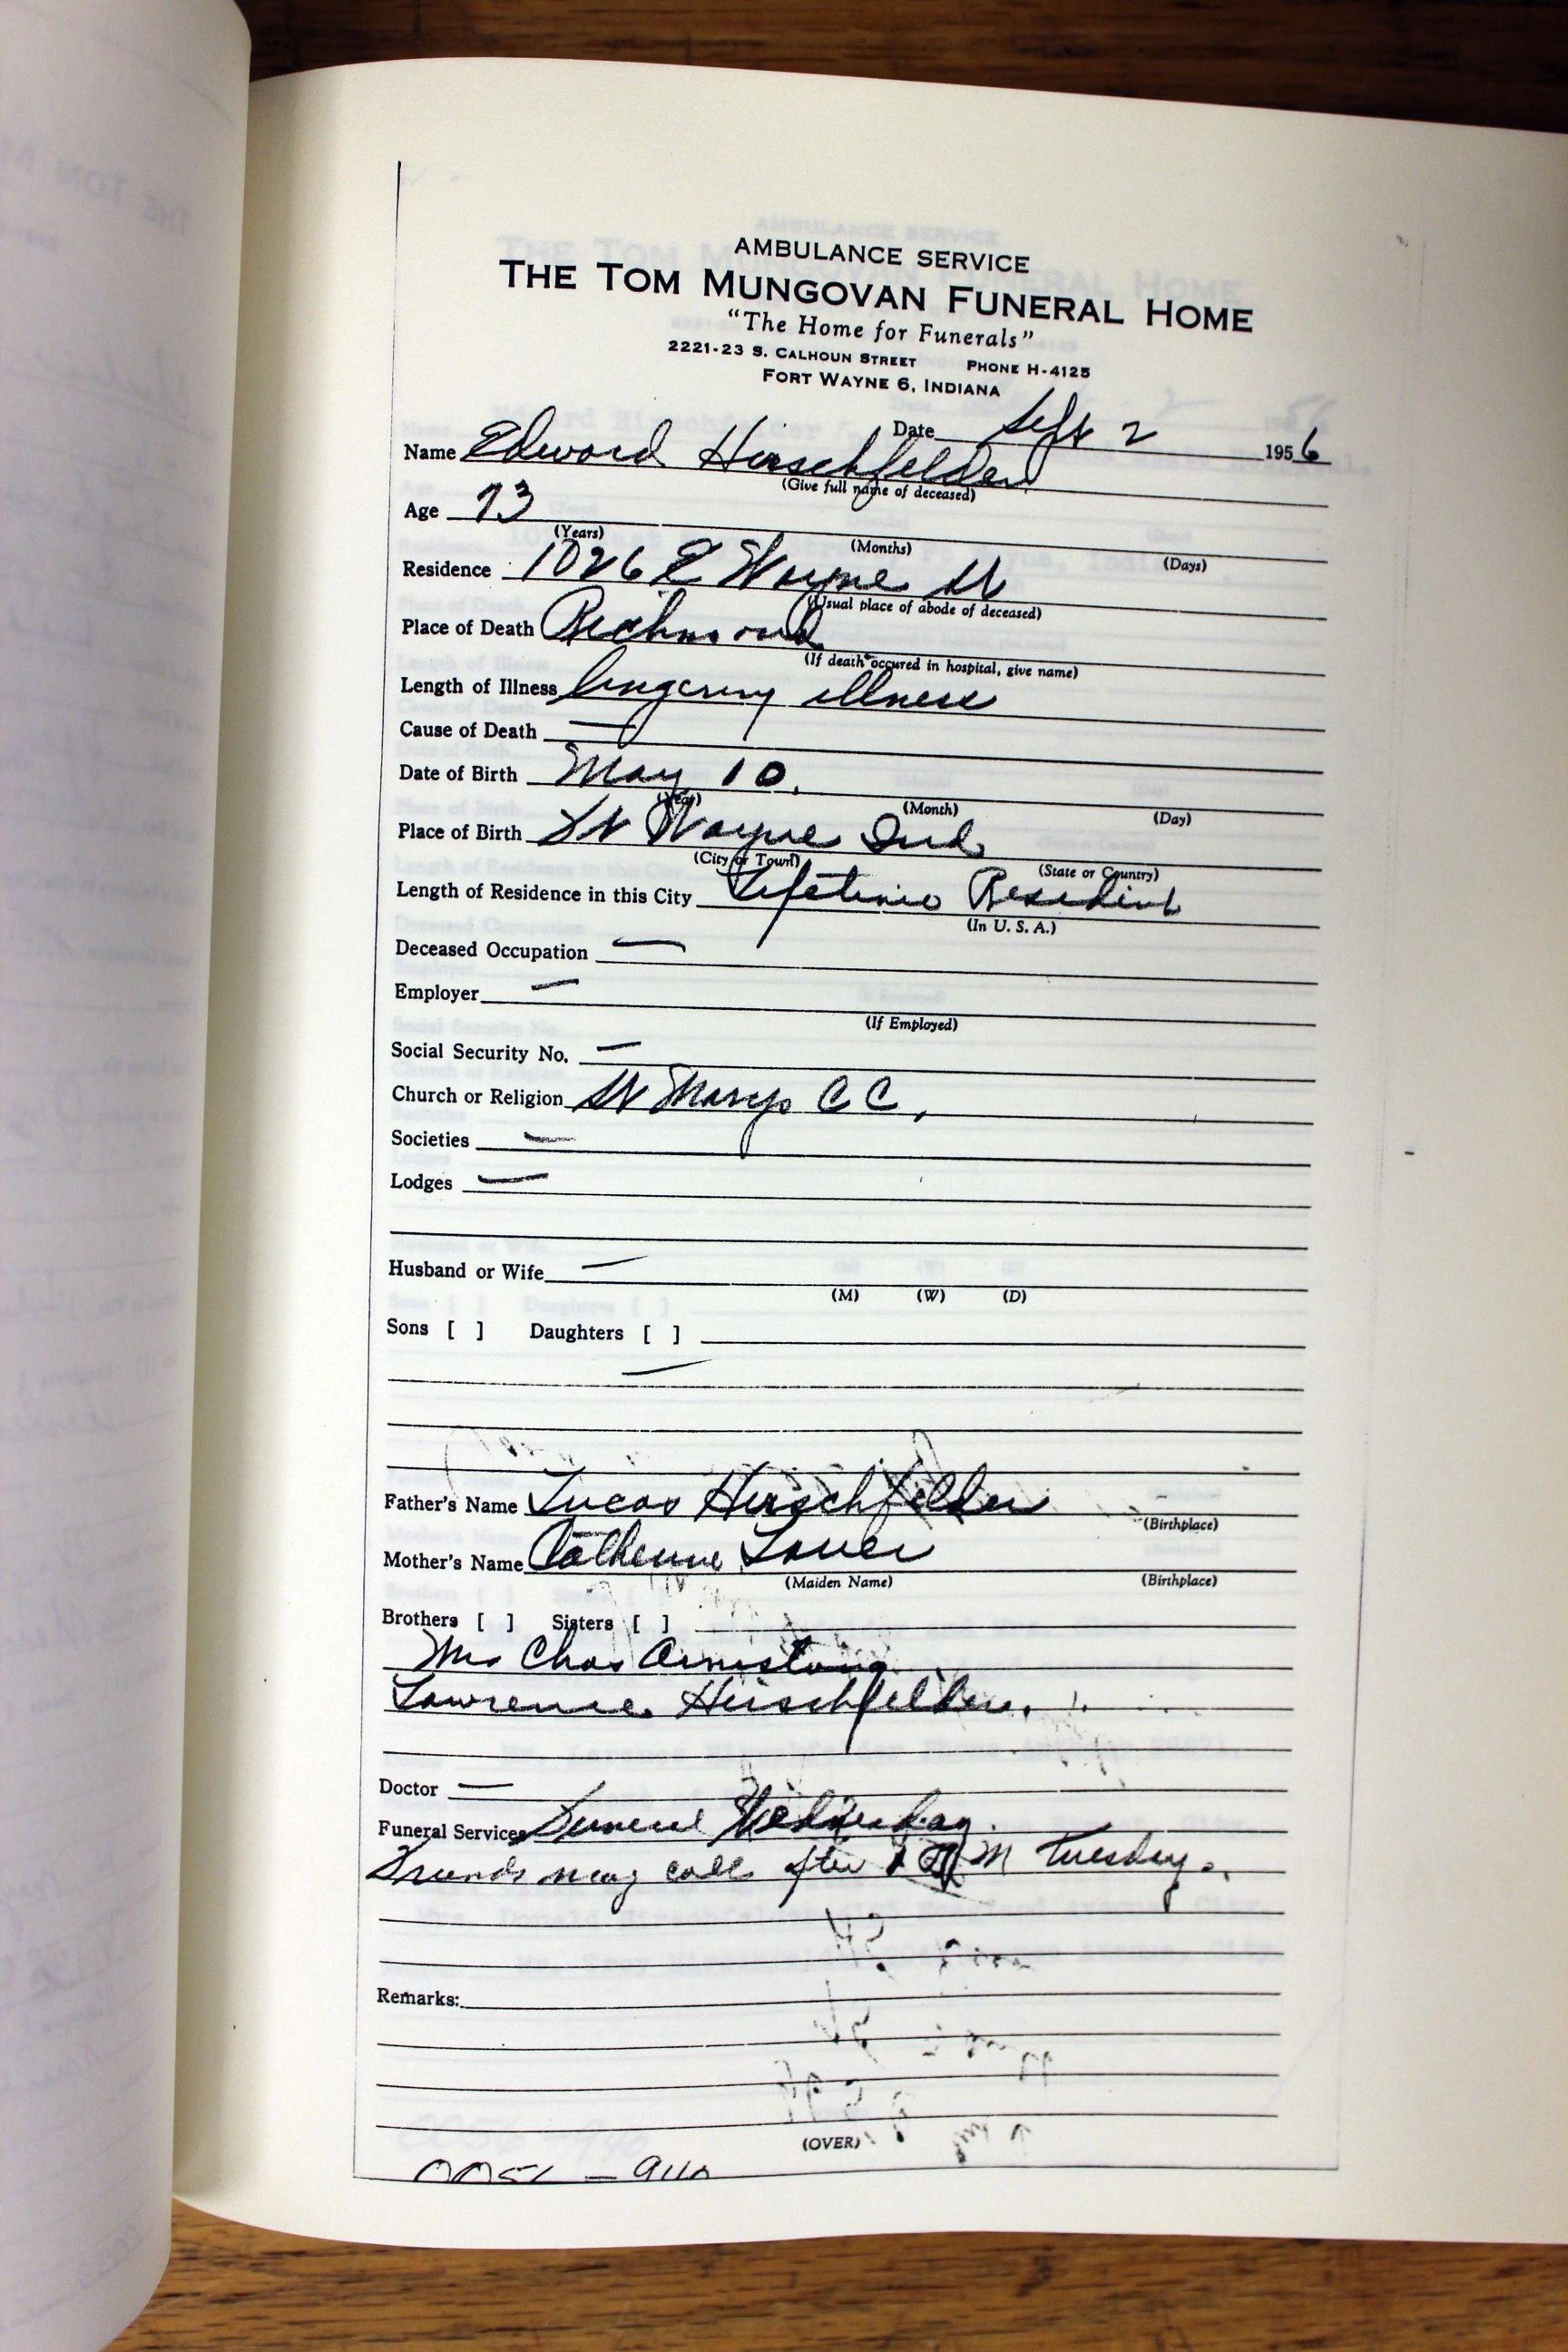 AMBULANCE SERVICE
THE TOM MUNGOVAN FUNERAL HOME
"The Home for Funerals"
2221-23 S. CALHOUN STREET PHONE H-4125
FORT WAYNE 6, INDIANA
Date Sept 2 1956
Name Edward Hirschfelder
(Give full name of deceased)
Age 73
(Years) (Months) (Days)
Residence 1026 E Wayne St
(Usual place of abode of deceased)
Place of Death Richmond
(If death occured in hospital, give name)
Length of Illness lingering illness
Cause of Death —
Date of Birth May 10.
(Year) (Month) (Day)
Place of Birth Ft Wayne Ind
(City or Town) (State or Country)
Length of Residence in this City Lifetime Resident
(In U. S. A.)
Deceased Occupation —
Employer —
(If Employed)
Social Security No. —
Church or Religion St Marys C C,
Societies —
Lodges —
Husband or Wife —
(M) (W) (D)
Sons [ ] Daughters [ ]
—
Father's Name Lucas Hirschfelder -
(Birthplace)
Mother's Name Catherine Lauer
(Maiden Name) (Birthplace)
Brothers [ ] Sisters [ ]
Mrs Chas Armstrong
Lawrence Hirschfelder.
Doctor —
Funeral Services Funeral Wednesday.
Friends may call after M Tuesday.
Remarks:
(OVER)